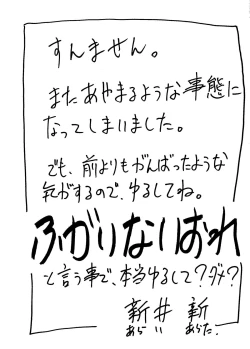 すんません。
またあやまるような事態に
なってしまいました。
でも、前よりもがんばったような
気がするので、ゆるしてね。
ふがいないおれ
と言う事で、本当ゆるして？ダメ？
新井 新
あらい あらた